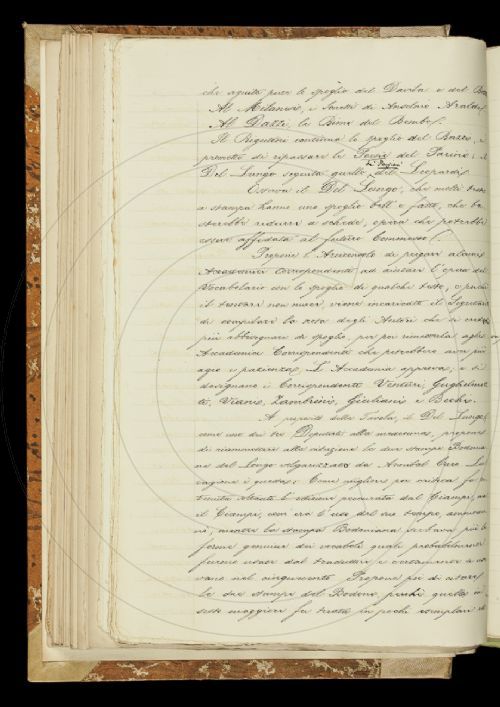 che seguita pure lo spoglio del Davila e del Bar
Al Milanesi, i Sonetti di Anselmo Araldi
Al Dazzi, le Rime del Bembo.
Il Rigutini continua lo spoglio del Bazzo, e
promette di ripassare le Poesie del Parini; il
Del Lungo seguita quello dei Pensieri del Leopardi.
Osserva il Del Lungo, che molti testi
a stampa hanno uno spoglio bell'e fatto, che ba
sterebbe ridurre a schede, opera che potrebbe
essere affidata al futuro Commesso.
Propone l'Arciconsolo di pregare alcuni
Accademici Corrispondenti ad aiutare l'opera del
Vocabolario con lo spoglio di qualche testo, e poiché
il trovare non manca, viene incaricato il Segretario
di compilare la nota degli Autori che si credono
più abbisognare di spoglio, per poi rimetterla agli
Accademici Corrispondenti che potrebbero aver più
agio e pazienza. L'Accademia approva; e si
designano i Corrispondenti Veratti, Guglielmot
ti, Viani, Zambrini, Giuliani e Becchi.
A proposito della Tavola, il Del Lungo,
come uno dei tre Deputati alla medesima, propone
di riammettere alla citazione la sua stampa Bodonia
na del Longo volgarizzato da Annibal Caro. La
cagione è questa: Come migliore per critica fu so
stituita l'edizione procurata dal Ciampi; ma
il Ciampi, com'era l'uso del suo tempo, ammoder
nò, mentre la stampa Bodoniana serbava più la
forma genuina dei vocaboli quali probabilmente
furono usati dal traduttore e certamente si usa
vano nel cinquecento. Propone poi di citare
le due stampe del Bodoni, perché quella in
sesto maggiore fu tirata in pochi esemplari ed